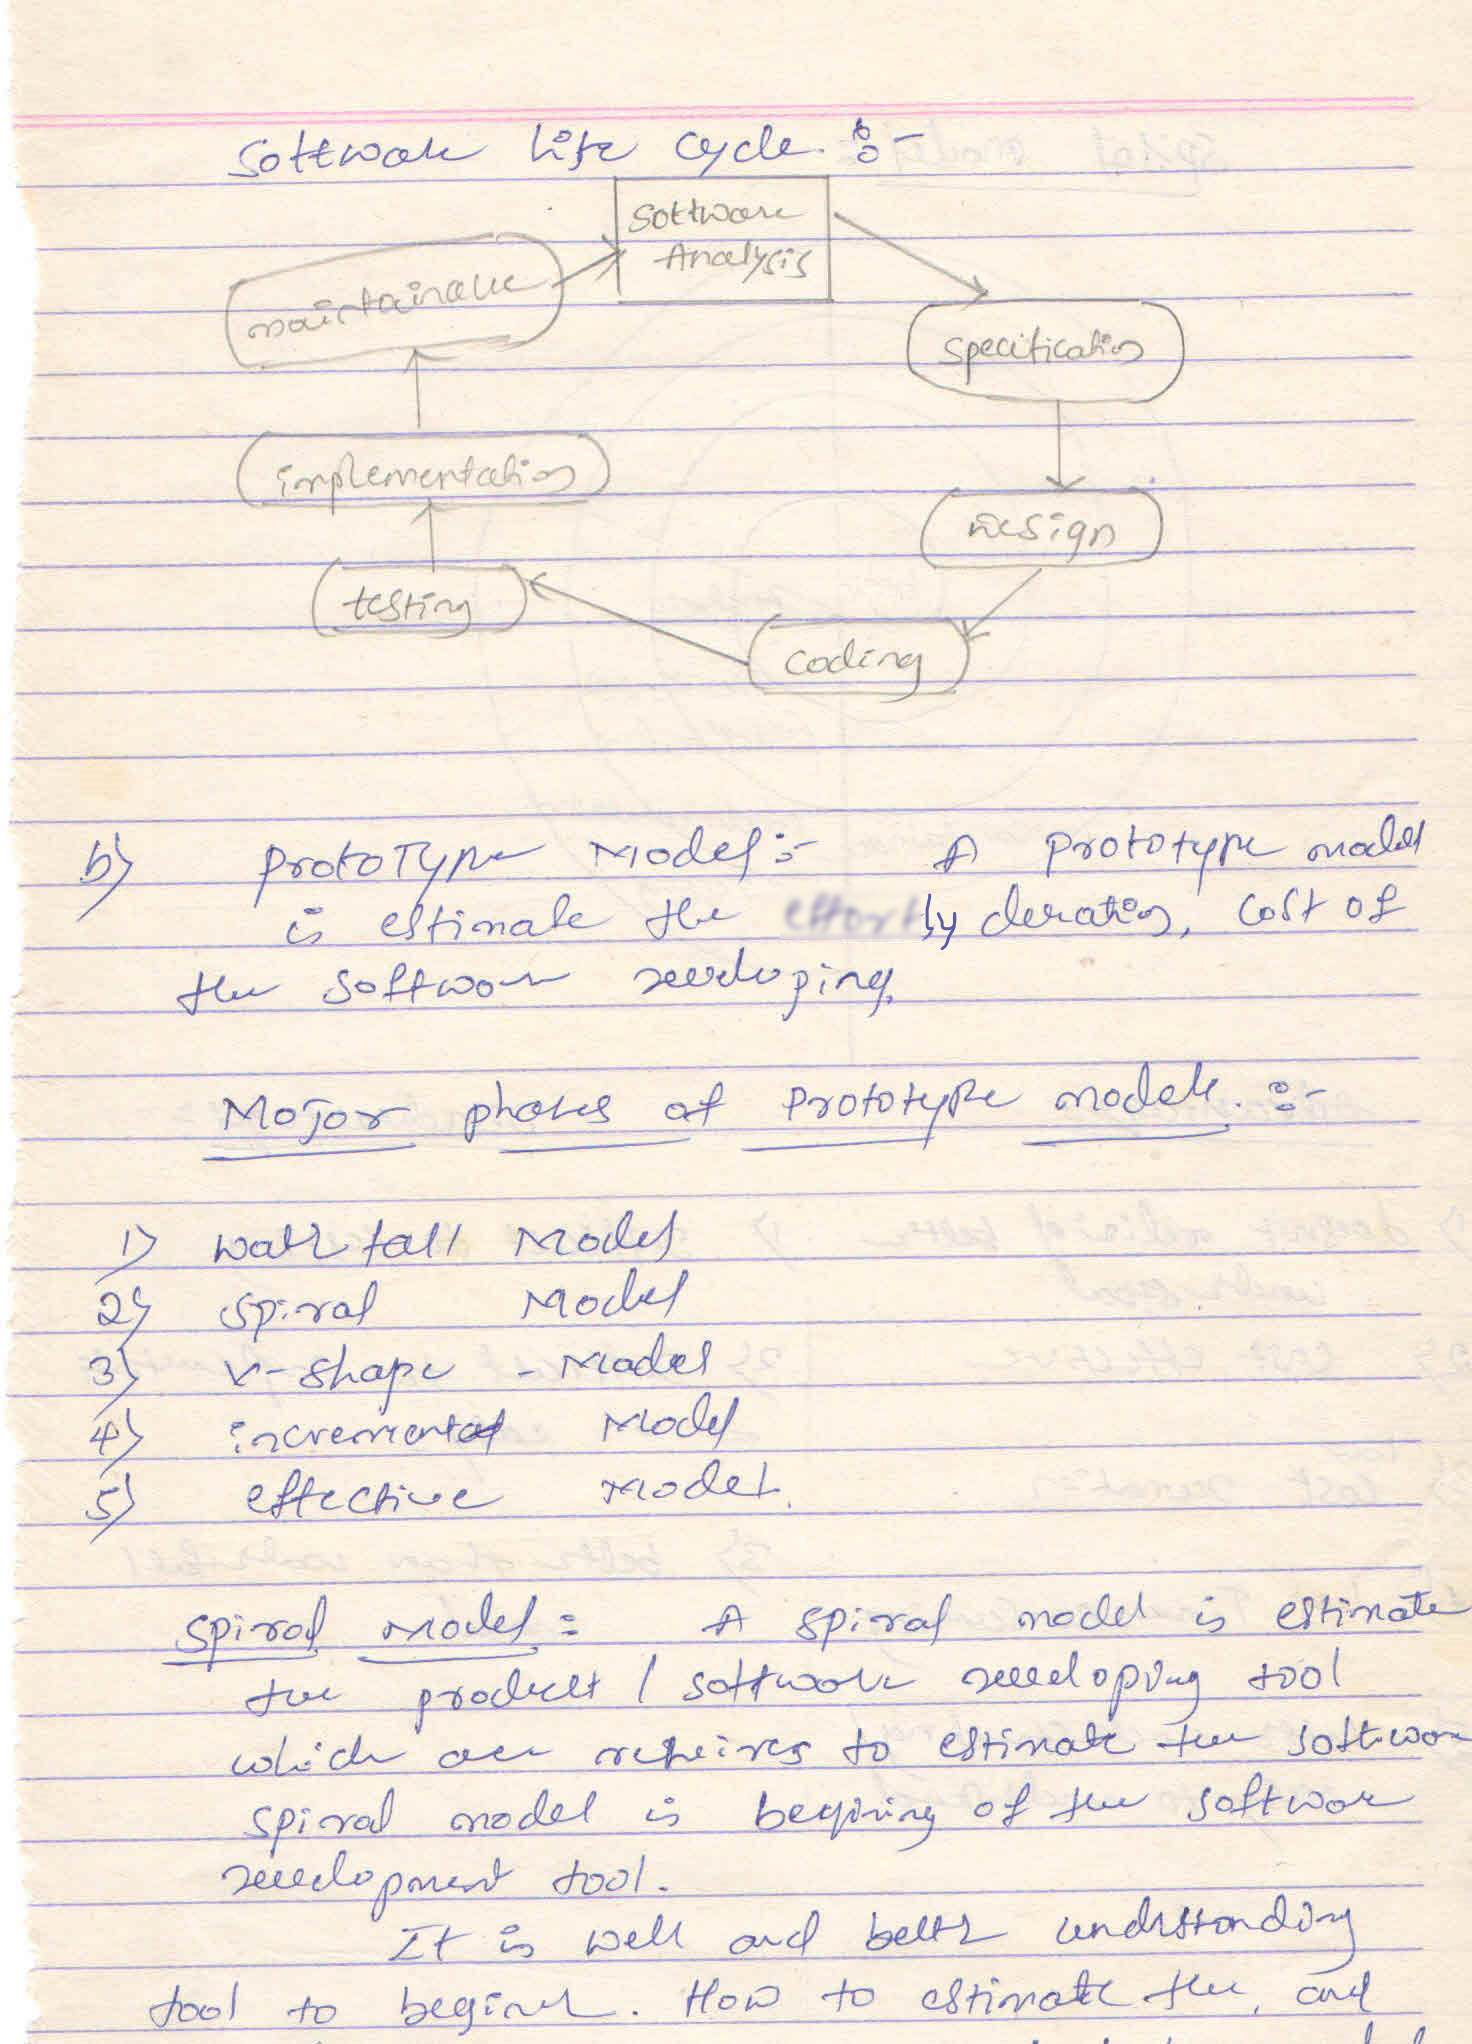 Software life cycle :-
Software
Analysis
maintainance
specification
implementation
Design
testing
coding
b) Prototype Model :- A Prototype model
is estimate the duration, cost of
the software developing.
Major phases of Prototype model. :-
1) water fall Model
2) spiral Model
3) V-shape - Model
4) incremental Model
5) effective Model.
Spiral Model : A spiral model is estimate
the product / software developing tool
which are to estimate the software
spiral model is of the software
development tool.
It is well and better understanding
tool to. How to estimate the, and